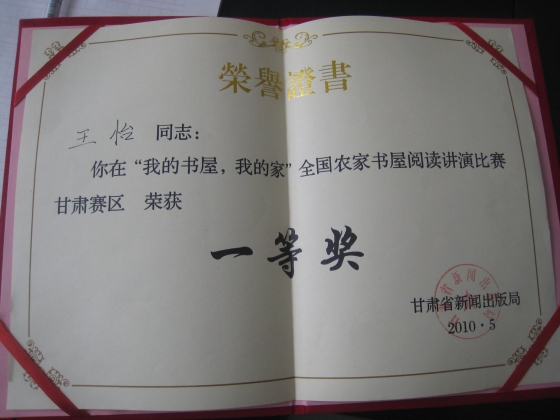 榮譽證書
王怡 同志：
你在“我的书屋，我的家”全国农家书屋阅读讲演比赛
甘肃赛区 荣获
一等奖
甘肃省新闻出版局
2010·5